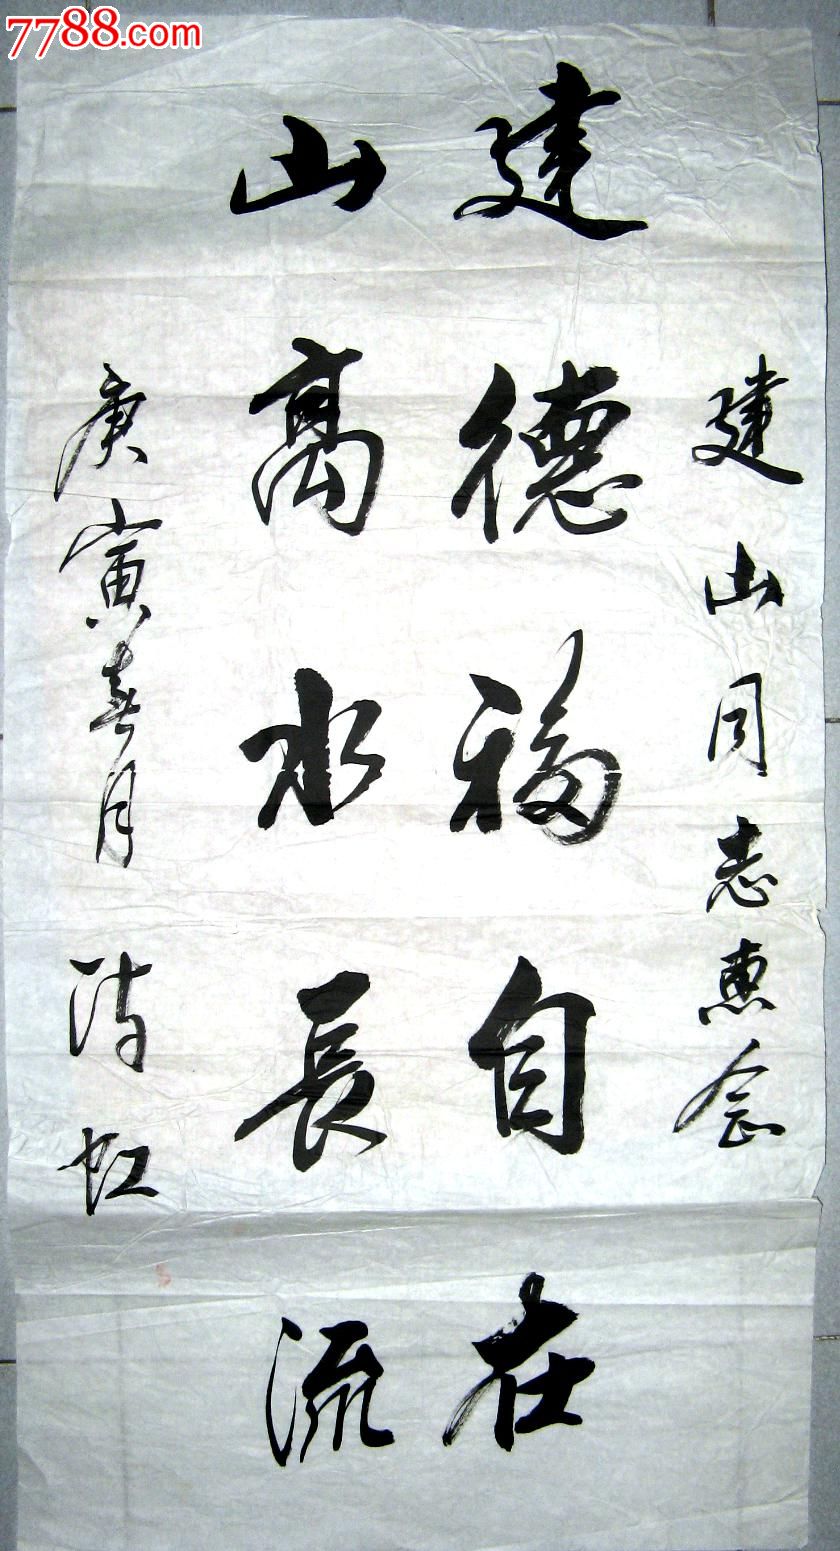 7788.com
建山同志惠念
建德福自在
山高水長流
庚寅春月 虹